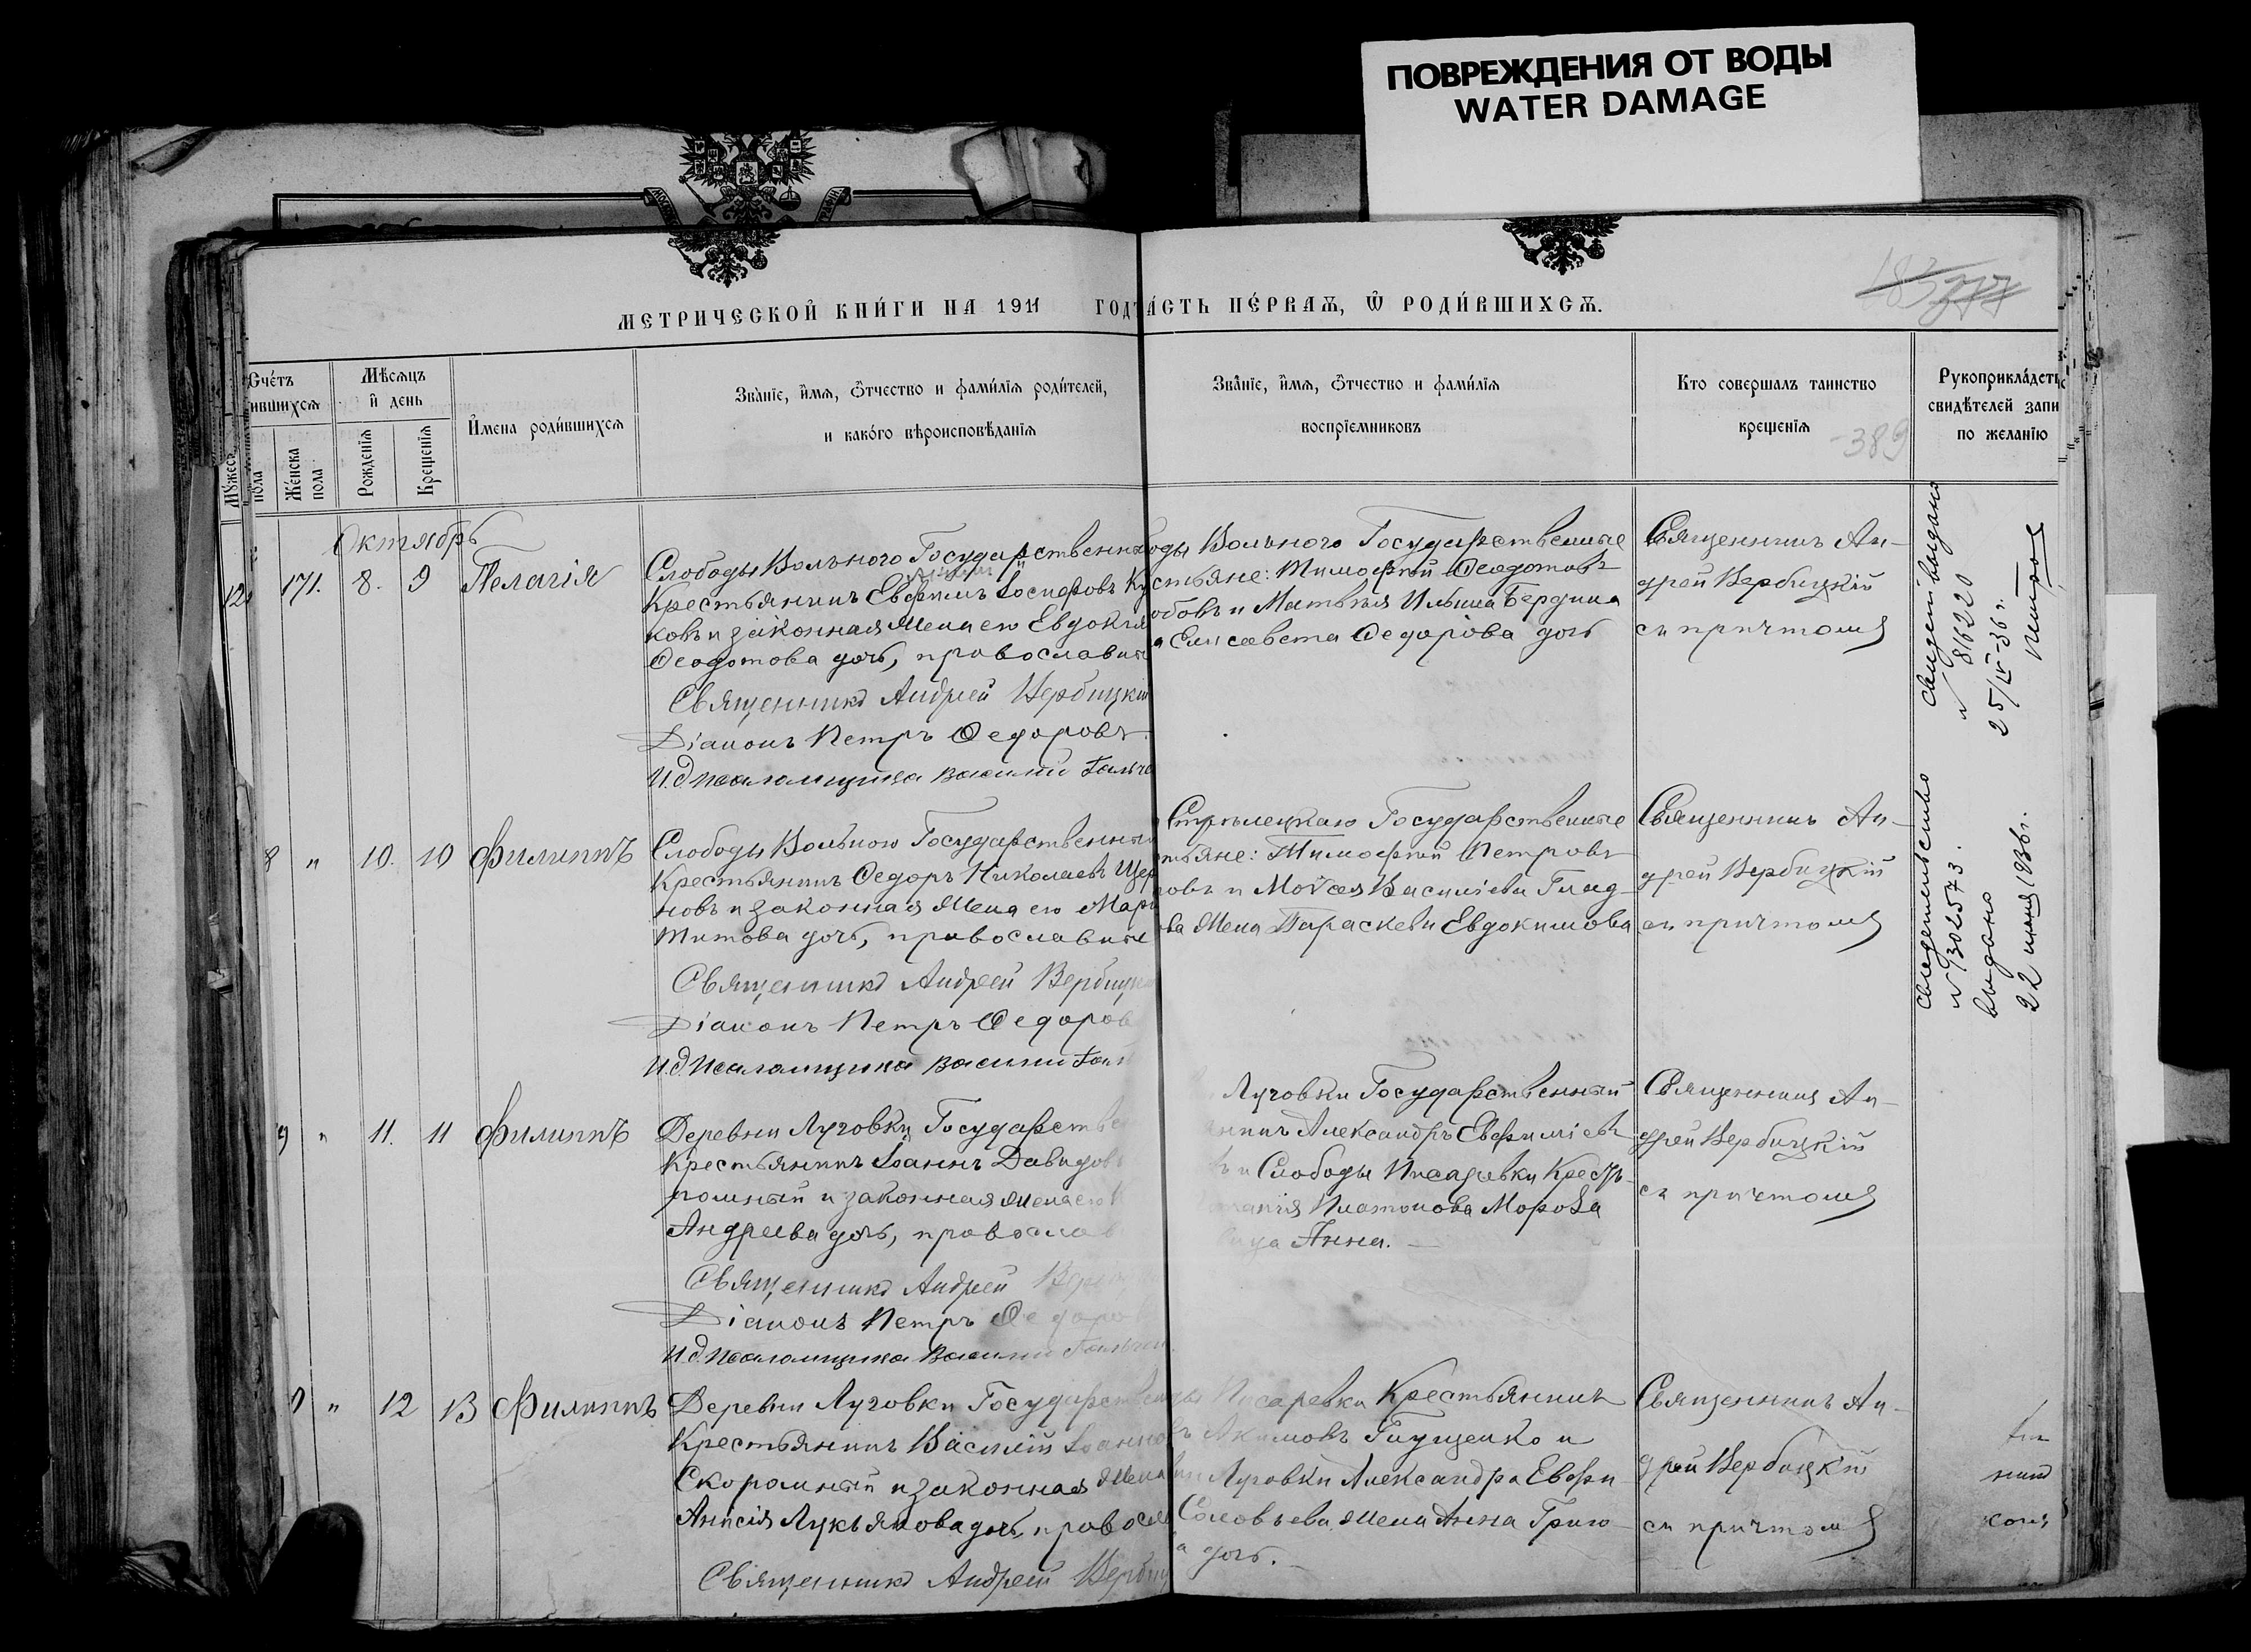 ПОВРЕЖДЕНИЯ ОТ ВОДЫ
WATER DAMAGE
МЕТРИЧЕСКОЙ КНИ́ГИ НА 1911 ГОД
А́СТЬ ПЕ́РВАѦ, Ѡ҆ РОДИ́ВШИХСѦ.
183 377
Сче́тъ
ившихсѧ
Мѣсѧцъ
и҆ день
Мꙋжеск
пола
Же́нска
пола
Рожденїѧ
Крещенїѧ
И҆мена роди́вшихсѧ
Зва́нїе, и҆мѧ, ѻ҆тчество и фами́лїѧ роди́телей,
и како́го вѣроисповѣданїѧ
Зва́нїе, и҆мѧ, ѻ҆тчество и фами́лїѧ
воспрїемниковъ
Кто совершалъ таинство
крещенїѧ
389
Рукоприкла́дст
свидѣтелей запи
по желанїю
Октябрь
171. 8. 9 Пелагія
Слободы Вольного Государственны
Крестьянинъ Евфимъ Іосифовъ Ку
ковъ и законная жена его Евдокія
Ѳеодотова дочь, православны
Священникъ Андрей Вербицкій
Діаконъ Петръ Ѳедоровъ
И.д. псаломщика Василій Гальче
оды Вольного Государственные
стьяне: Тимофей Ѳеодотовъ
обовъ и Матвея Ильина Бердина
а Елисавета Ѳедорова дочь
Священникъ Ан-
дрей Вербицкій
съ причтомъ
Свидет. выдано
№ 816220
25/IV-36 г.
8 " 10. 10 Филиппъ
Слободы Вольного Государственный
Крестьянинъ Ѳедоръ Николаевъ Щер
новъ и законная жена его Мар
Титова дочь, православные
Священникъ Андрей Вербицк
Діаконъ Петръ Ѳедоров
И.д. Псаломщика Василій Гал
Стрѣлецкаго Государственные
стьяне: Тимофей Петровъ
ровъ и Моѵсея Василіева Глад-
ва жена Параскева Евдокимова
Священникъ Ан-
дрей Вербицкій
съ причтомъ
Свидетельство
№ 302573.
выдано
22 июня 1936 г.
9 " 11. 11 Филиппъ
Деревни Луговки Государстве
Крестьянинъ Іоаннъ Давидов
ромный и законная жена его
Андреева дочь, православ
Священникъ Андрей Верби
Діаконъ Петръ Ѳедоро
И.д. псаломщика Василій Гальчен
Луговки Государственный
янинъ Александръ Евфиміевъ
въ и Слободы Писаревки Кресть-
Платонова Мороза
вица Анна.
Священникъ Ан-
дрей Вербицкій
съ причтомъ
" 12 13 Филиппъ
Деревни Луговки Государствен
Крестьянинъ Василій Іоаннов
Скоромный и законная жена
Анисія Лукьянова дочь, правосл
Священникъ Андрей Вербиц
ды Писаревки Крестьянинъ
Акимовъ Глущенко и
Луговки Александра Евфи
Соловьева жена Анна Григо
а дочь.
Священникъ Ан-
дрей Вербицкій
съ причтомъ